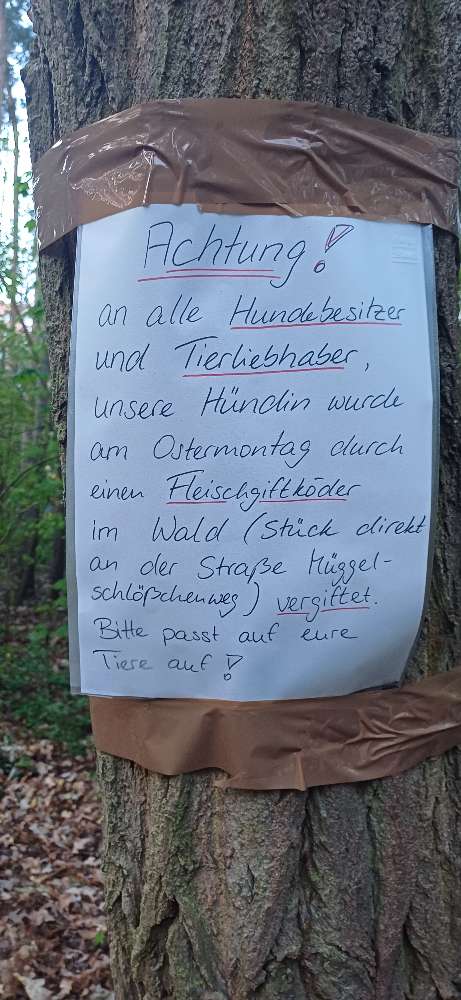 Achtung!
an alle Hundebesitzer
und Tierliebhaber,
unsere Hündin wurde
am Ostermontag durch
einen Fleischgiftköder
im Wald (Stück direkt
an der Straße Müggel-
schlößchenweg) vergiftet.
Bitte passt auf eure
Tiere auf!